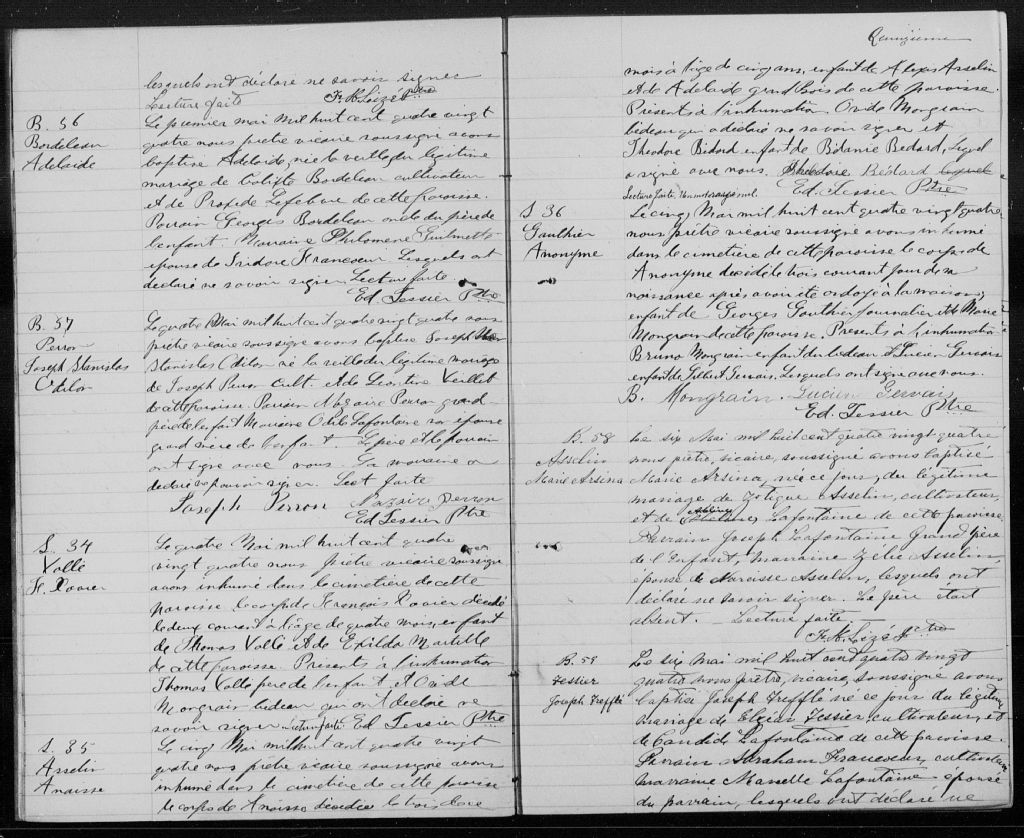 lesquels ont déclaré ne savoir signer
Lecture faite F. A. Lizé Ptre
B. 56
Bordeleau
Adelaide
Le premier mai mil huit cent quatre vingt
quatre nous prêtre vicaire soussigné avons
baptisé Adelaide, née la veille du légitime
mariage de Calixte Bordeleau cultivateur
et de Proxede Lefebvre de cette paroisse.
Parrain Georges Bordeleau oncle du père de
l'enfant. Marraine Philomene Guilmette
épouse de Isidore Francoeur Lesquels ont
déclaré ne savoir signer. Lecture faite.
Ed. Tessier Ptre
B. 57
Perron
Joseph Stanislas
Odilon
Le quatre Mai mil huit cent quatre vingt quatre nous
prêtre vicaire soussigné avons baptisé Joseph
Stanislas Odilon né la veille du légitime mariage
de Joseph Perron cult. et de Léontine Veillet
de cette paroisse. Parrain Nazaire Perron grand-
père de l'enfant Marraine Odile Lafontaine son épouse
grand'mère de l'enfant. Le père et le parrain
ont signé avec nous. La marraine a
déclaré ne pouvoir signer. Lect. faite
Joseph Perron Nazaire Perron
Ed Tessier Ptre
S. 34
Vallé
F. Xavier
Le quatre Mai mil huit cent quatre
vingt quatre nous prêtre vicaire soussigné
avons inhumé dans le cimetière de cette
paroisse le corps de François Xavier décédé
le deux courant à l'âge de quatre mois, enfant
de Thomas Vallé et de Exilda Martelle
de cette paroisse. Presents à l'inhumation
Thomas Vallé père de l'enfant et Ovide
Mongrain bedeau qui ont déclaré ne
savoir signer. Lecture faite Ed Tessier Ptre
S. 35
Asselin
Anaisse
Le cinq Mai mil huit cent quatre vingt
quatre nous prêtre vicaire soussigné avons
inhumé dans le cimetière de cette paroisse
le corps de Anaisse décédée le trois de ce
Quinzième
mois à l'âge de cinq ans, enfant de Alexis Asselin
et de Adelaide grand bois de cette paroisse.
Présents à l'inhumation Ovide Mongrain
bedeau qui a déclaré ne savoir signer et
Théodore Bédard enfant de Bétanie Bedard, Lequel
a signé avec nous. Théodore Bédard
Lecture faite. Un mot rayé nul. Ed. Tessier Ptre
S 36
Gauthier
Anonyme
Le cinq Mai mil huit cent quatre vingt quatre
nous prêtre vicaire soussigné avons inhumé
dans le cimetière de cette paroisse le corps de
Anonyme décédé le trois courant jour de sa
naissance après avoir été ondoyé à la maison,
enfant de Georges Gauthier journalier et de Marie
Mongrain de cette paroisse. Presents à l'inhumation
Bruno Mongrain enfant du bedeau et Lucien Gervais
enfant de Gilbert Gervais, Lesquels ont signé avec nous.
B. Mongrain. Lucien Gervais
Ed. Tessier Ptre
B. 58
Asselin
Marie Arsina
Le six Mai mil huit cent quatre vingt quatre
nous prêtre, vicaire, soussigné avons baptisé
Marie Arsina, née ce jour, du légitime
mariage de Zotique Asselin, cultivateur,
et de Lafontaine de cette paroisse.
Parrain Joseph Lafontaine Grand'père
de l'Enfant, marraine Zélie Asselin
épouse de Narcisse Asselin, lesquels ont
déclaré ne savoir signer. Le père était
absent. – Lecture faite
F. A. Lizé Ptre
B. 59
Tessier
Joseph Trefflé
Le six Mai mil huit cent quatre vingt
quatre nous prêtre, vicaire, soussigné avons
baptisé Joseph Trefflé né ce jour du légitime
mariage de Elzéar Tessier, cultivateur, et
de Candide Lafontaine de cette paroisse.
Parrain Abraham Francoeur, cultivateur,
marraine Marcelle Lafontaine épouse
du parrain, lesquels ont déclaré ne